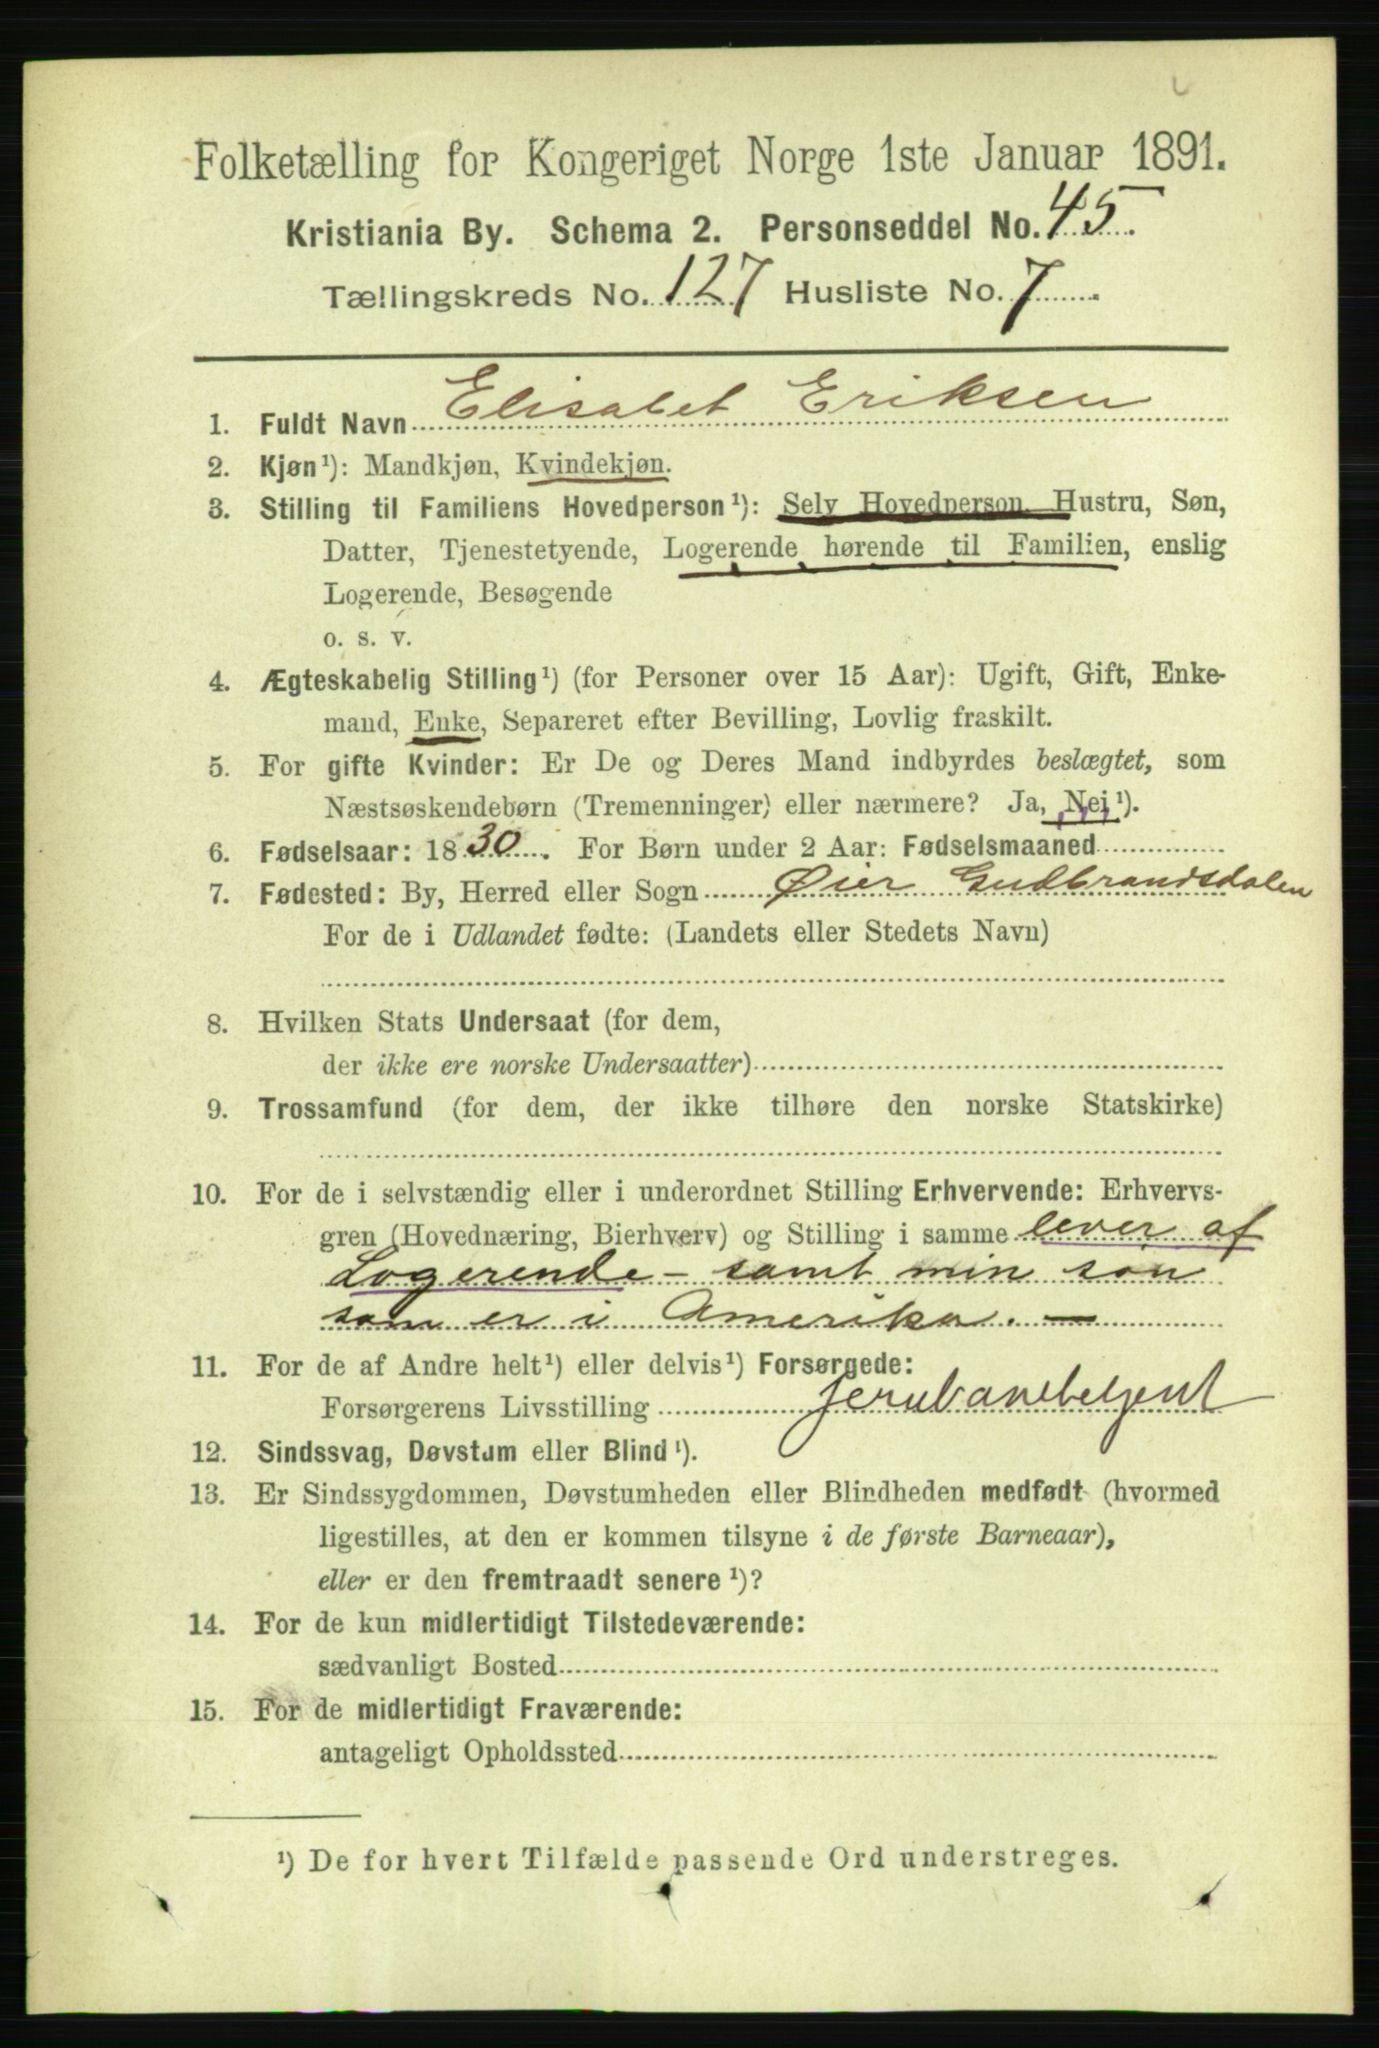 Folketælling for Kongeriget Norge 1ste Januar 1891.
Kristiania By. Schema 2. Personseddel No. 45.
Tællingskreds No. 127 Husliste No. 7.
1. Fuldt Navn Elisabet Eriksen
2. Kjøn¹): Mandkjøn, Kvindekjøn.
3. Stilling til Familiens Hovedperson¹): Selv Hovedperson, Hustru, Søn,
Datter, Tjenestetyende, Logerende hørende til Familien, enslig
Logerende, Besøgende
o. s. v.
4. Ægteskabelig Stilling¹) (for Personer over 15 Aar): Ugift, Gift, Enke-
mand, Enke, Separeret efter Bevilling, Lovlig fraskilt.
5. For gifte Kvinder: Er De og Deres Mand indbyrdes beslægtet, som
Næstsøskendebørn (Tremenninger) eller nærmere? Ja, Nej ¹).
6. Fødselsaar: 1830. For Børn under 2 Aar: Fødselsmaaned
7. Fødested: By, Herred eller Sogn Øier Gudbrandsdalen
For de i Udlandet fødte: (Landets eller Stedets Navn)
8. Hvilken Stats Undersaat (for dem,
der ikke ere norske Undersaatter)
9. Trossamfund (for dem, der ikke tilhøre den norske Statskirke)
10. For de i selvstændig eller i underordnet Stilling Erhvervende: Erhvervs-
gren (Hovednæring, Bierhverv) og Stilling i samme lever af
Logerende - samt min søn
som er i Amerika. —
11. For de af Andre helt¹) eller delvis¹) Forsørgede:
Forsørgerens Livsstilling
12. Sindssvag, Døvstum eller Blind ¹).
13. Er Sindssygdommen, Døvstumheden eller Blindheden medfødt (hvormed
ligestilles, at den er kommen tilsyne i de første Barneaar),
eller er den fremtraadt senere ¹)?
14. For de kun midlertidigt Tilstedeværende:
sædvanligt Bosted
15. For de midlertidigt Fraværende:
antageligt Opholdssted
¹) De for hvert Tilfælde passende Ord understreges.